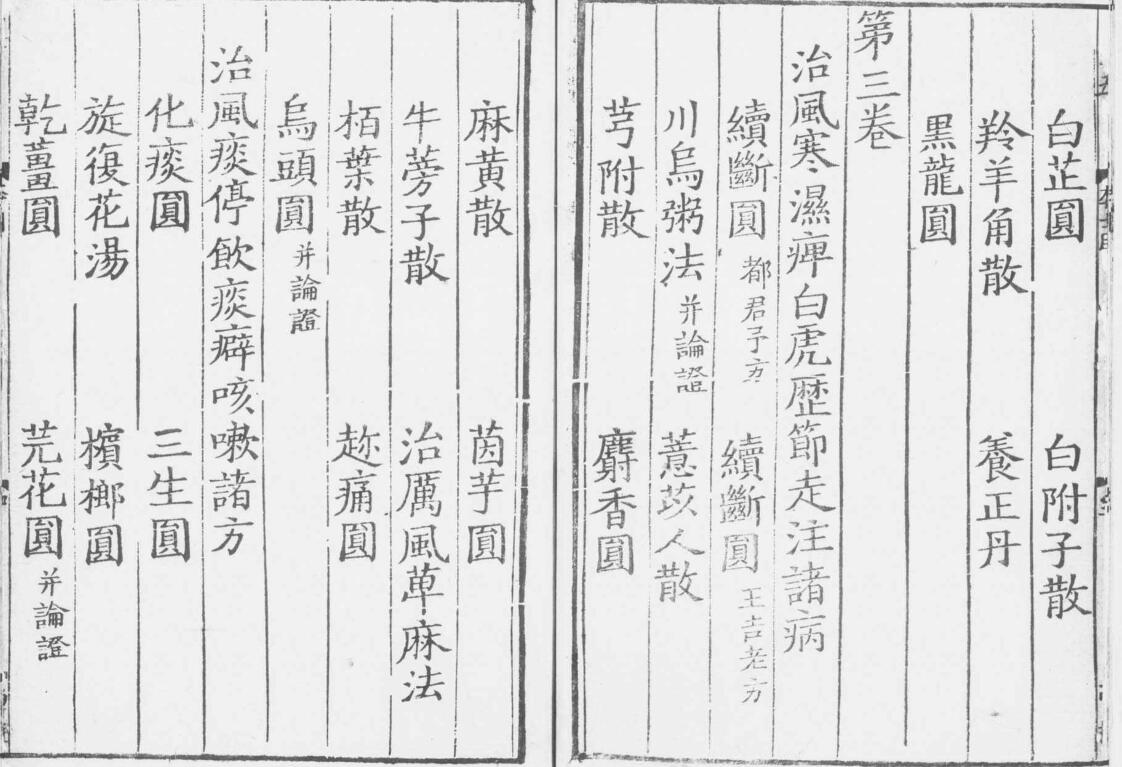 白芷圓 白附子散
羚羊角散 養正丹
黑龍圓
第三卷
治風寒濕痺白虎歷節走注諸病
續斷圓 都君子方 續斷圓 王吉老方
川烏粥法 并論證 薏苡人散
芎附散 麝香圓
麻黄散 茵芋圓
牛蒡子散 治厲風萆麻法
栢葉散 趂痛圓
烏頭圓 并論證
治風痰停飲痰癖咳嗽諸方
化痰圓 三生圓
旋復花湯 檳榔圓
乾薑圓 芫花圓 并論證